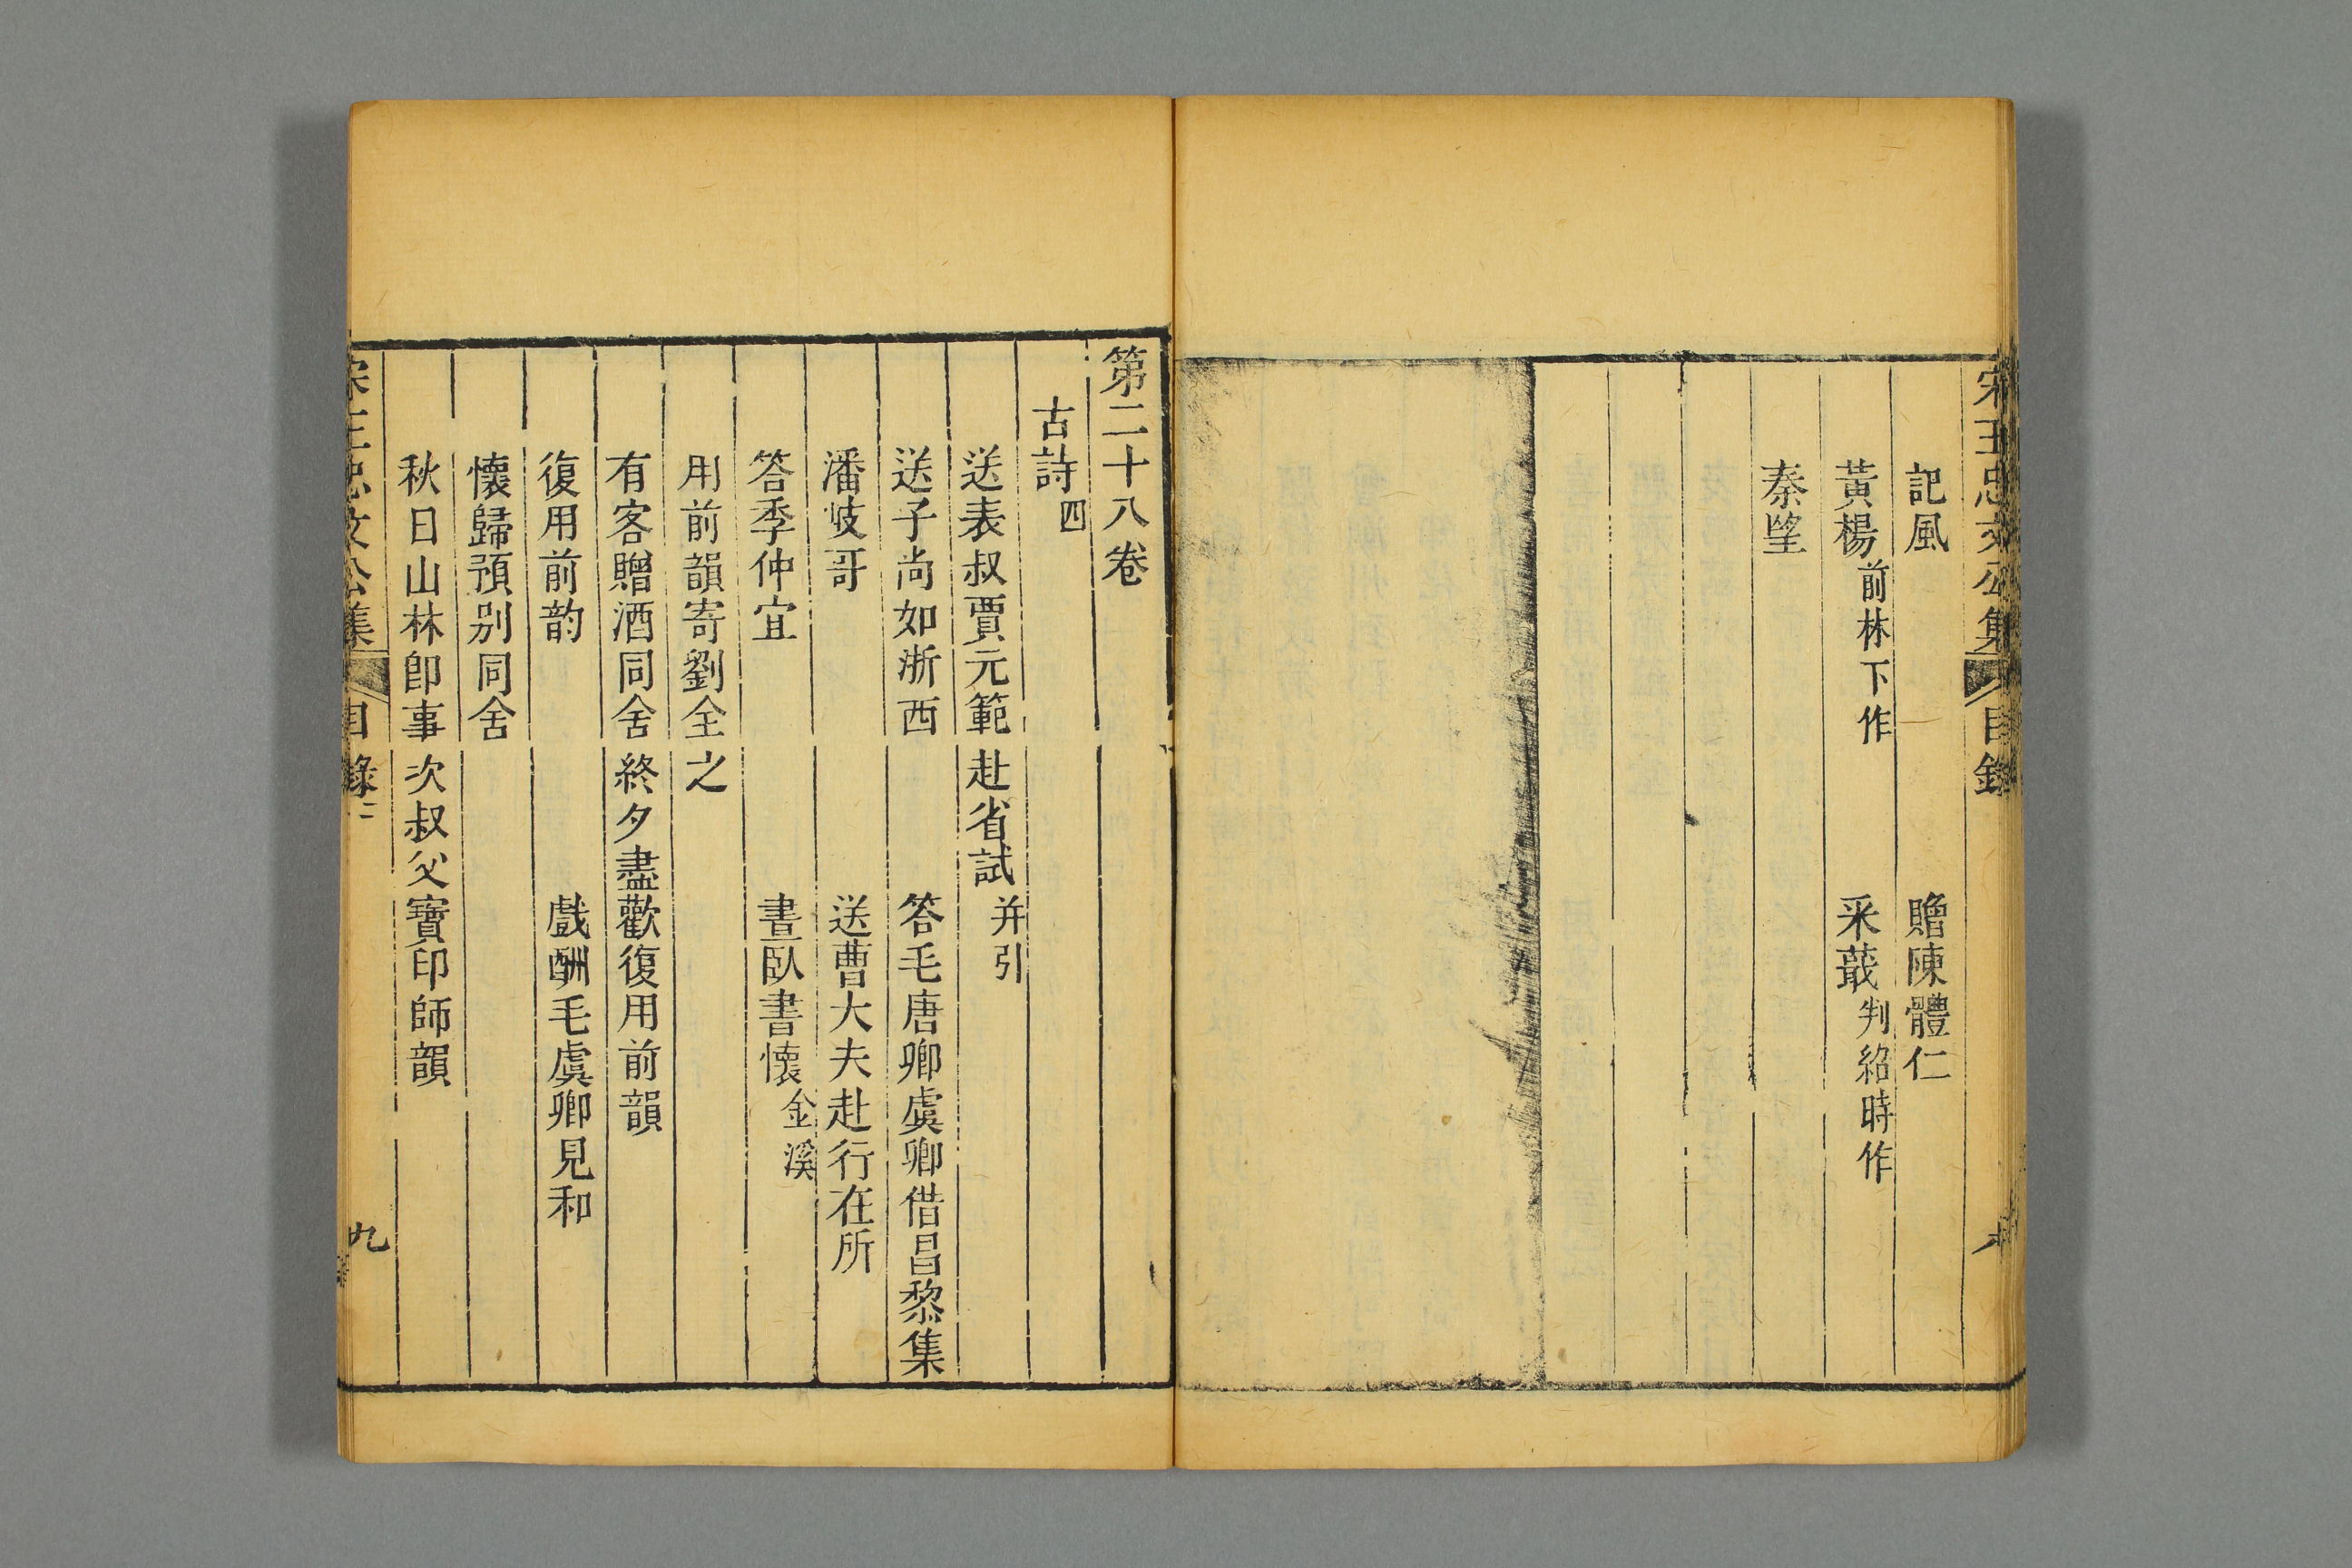 宋王忠文公集 目錄
記風 贈陳體仁
黃楊 前林下作 采蕺 判紹時作
秦望
第二十八卷
古詩四
送表叔賈元範赴省試 并引
送子尚如浙西 答毛唐卿虞卿借昌黎集
潘岐哥 送曹大夫赴行在所
答季仲宜 晝臥書懷 金溪
用前韻寄劉全之
有客贈酒同舍終夕盡歡復用前韻
復用前韵 戲酬毛虞卿見和
懷歸預别同舍
秋日山林卽事次叔父寶印師韻
宋王忠文公集 目錄二 九